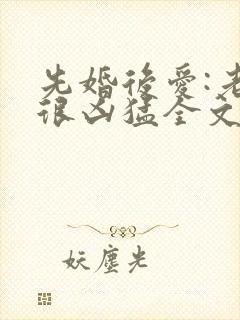 先婚後愛:老
很凶猛全文
妖塵光